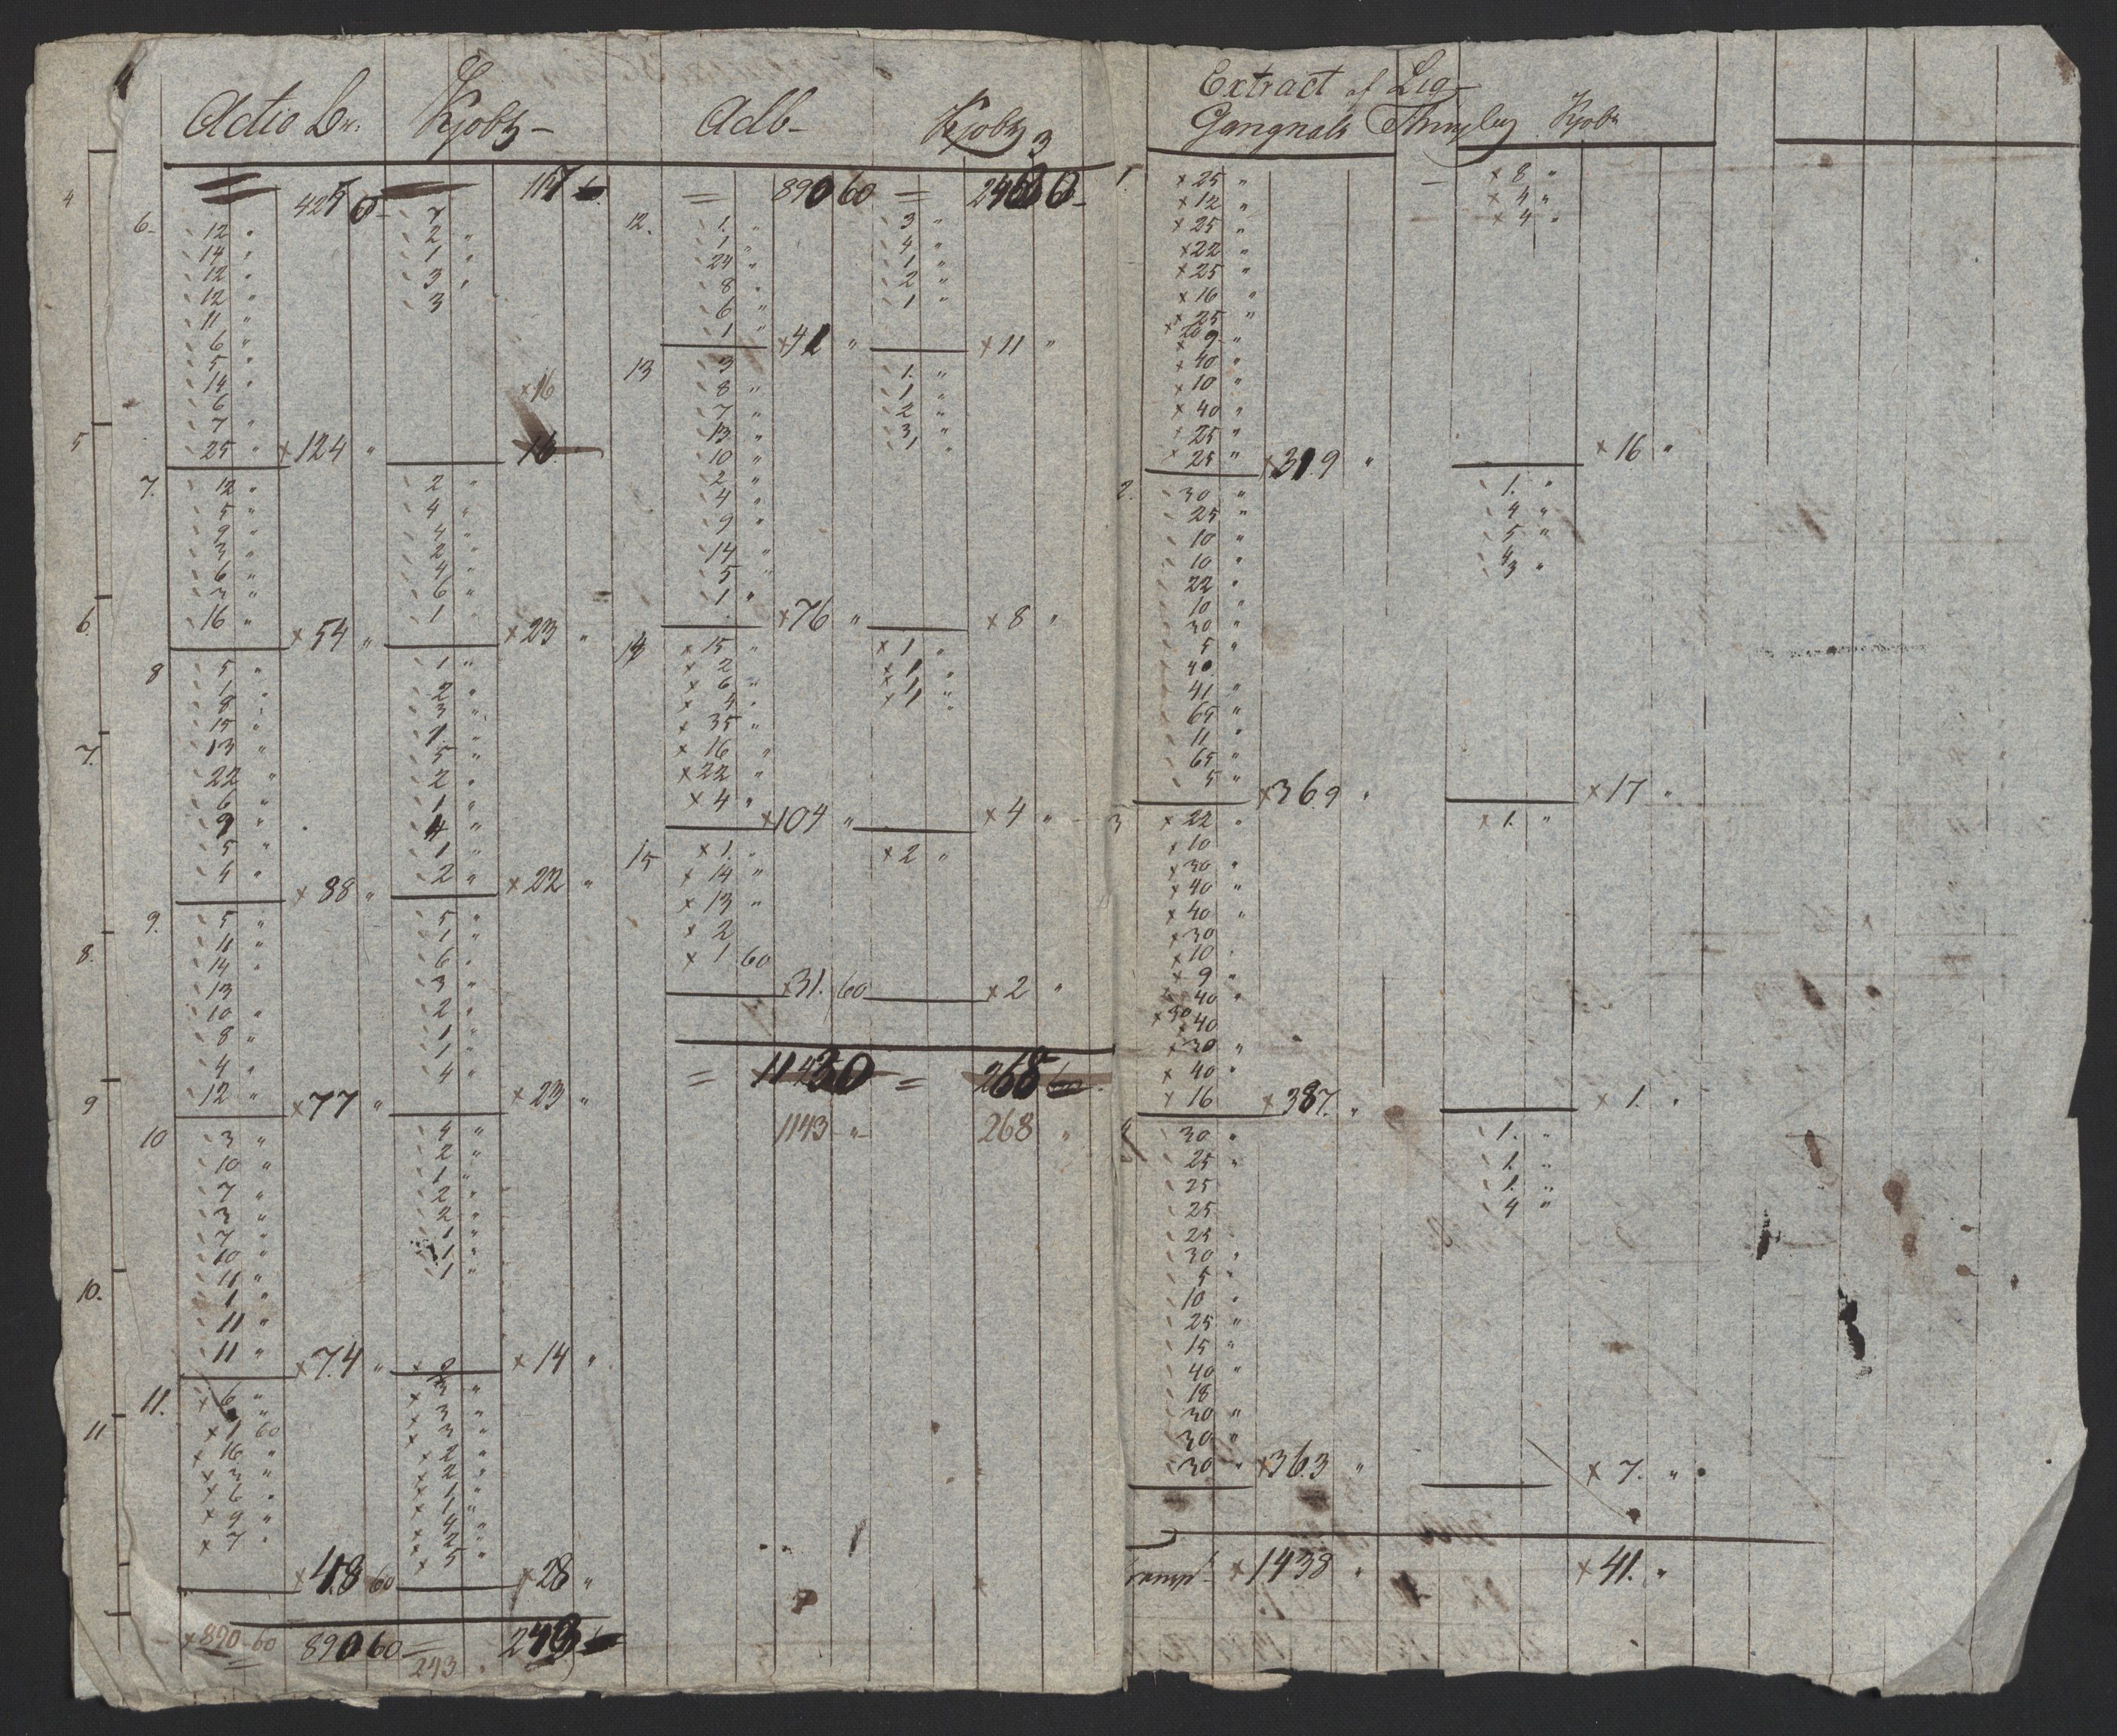 Kjobz
Adb
Kjobz
Extract af
Kjobz
890 60
6. 12
14
12
12
11
6
5
14
6
7
25 × 124
2
1
3
3
× 16
16
7. 12
5
9
3
6
3
16 × 54
2
4
4
2
4
6
1 × 23
8 5
1
8
15
13
22
6
9
5
4 × 88
1
2
3
1
5
2
1
4
1
2 × 22
9. 5
11
14
13
10
8
4
12 × 77
5
1
6
3
2
1
1
4 × 23
10 3
10
7
3
7
10
11
1
11
11 × 74
4
2
1
2
2
1
1
1 × 14
11. × 6
× 1 60
× 16
× 3
× 6
× 9
× 7
× 48 60
× 3
× 3
× 3
× 2
× 2
× 1
× 1
× 4
× 2
× 5 × 28
× 890 60 890 60 243
243
12. 1
1
24
8
6
1 × 41
3
4
1
2
1 × 11
13 3
8
7
13
10
2
4
9
14
5
1
× 76
1
1
2
3
1
× 8
14 × 15
× 2
× 6
× 4
× 35
× 16
× 22
× 4
× 104
× 1
× 1
× 1
× 1
× 4
15 × 1
× 14
× 13
× 2
× 1 60
× 31. 60
× 2
× 2
268
1143 268
1. × 25
× 12
× 25
× 22
× 25
× 16
× 25
× 20
× 9
× 40
× 10
× 40
× 25
× 25 × 319
× 8
× 4
× 4
× 16
2. 30
25
10
10
22
10
30
5
40
41
65
11
65
5 × 369
1.
4
5
4
3
× 17
3 × 22
× 10
× 30
× 40
× 40
× 30
× 10
× 9
× 40
× 30
× 40
× 30
× 40
× 16 × 387.
× 1.
× 1.
30
25
25
25
25
30
5
10
25
15
40
18
30
30
30 × 363
1.
1.
1.
4
× 7.
× 1438 × 41.
4
5
6
7.
8.
9
10.
11